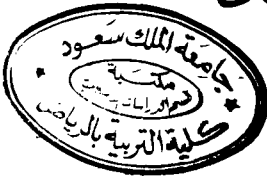 جامعة الملك سعود
مكتبة
كلية التربية بالرياض